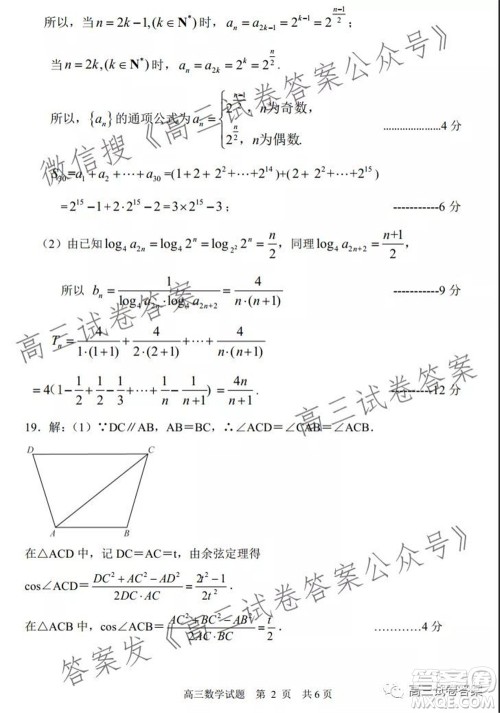 所以，当 n=2k-1,(k∈N*) 时，aₙ=a₂ₖ₋₁=2^{k-1}=2^{\frac{n-1}{2}}
当 n=2k,(k∈N*) 时，aₙ=a₂ₖ=2^k=2^{\frac{n}{2}}.
所以，{aₙ} 的通项公式为 aₙ={2^{\frac{n-1}{2}}，n为奇数， 2^{\frac{n}{2}}，n为偶数. ....................4 分
S₃₀=a₁+a₂+⋯+a₃₀=(1+2+2²+⋯+2¹⁴)+(2+2²⋯+2¹⁵)
=2¹⁵-1+2·2¹⁵-2=3×2¹⁵-3； -----------6 分
（2）由已知 log₄ a₂ₙ=log₄ 2ⁿ=log_{2²} 2ⁿ=\frac{n}{2}，同理 log₄ a₂ₙ₊₂=\frac{n+1}{2}，
所以 bₙ=\frac{1}{log₄ a₂ₙ·log₄ a₂ₙ₊₂}=\frac{4}{n·(n+1)} -----------9 分
Tₙ=\frac{4}{1·(1+1)}+\frac{4}{2·(2+1)}+⋯+\frac{4}{n·(n+1)}
=4(1-\frac{1}{2}+\frac{1}{2}-\frac{1}{3}+⋯+\frac{1}{n}-\frac{1}{n+1})=\frac{4n}{n+1}. -----------12 分
19．解：（1）∵DC∥AB，AB＝BC，∴∠ACD＝∠CAB＝∠ACB．
D
C
A
B
在△ACD 中，记 DC＝AC＝t，由余弦定理得
cos∠ACD＝\frac{DC²+AC²-AD²}{2DC·AC}＝\frac{2t²-1}{2t²}．
在△ACB 中，cos∠ACB＝\frac{AC²+BC²-AB²}{2AC·BC}＝\frac{t}{2}． ............4 分
高三数学试题 第 2 页 共 6 页
微信搜《高三试卷答案公众号》
高三试卷答案
高三试卷答案
答案发《高三试卷答案公众号》
高三试卷答案